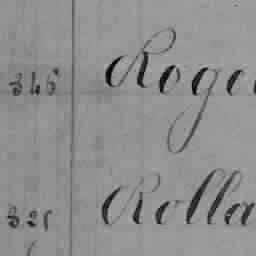 346 Roge
321 Rolla